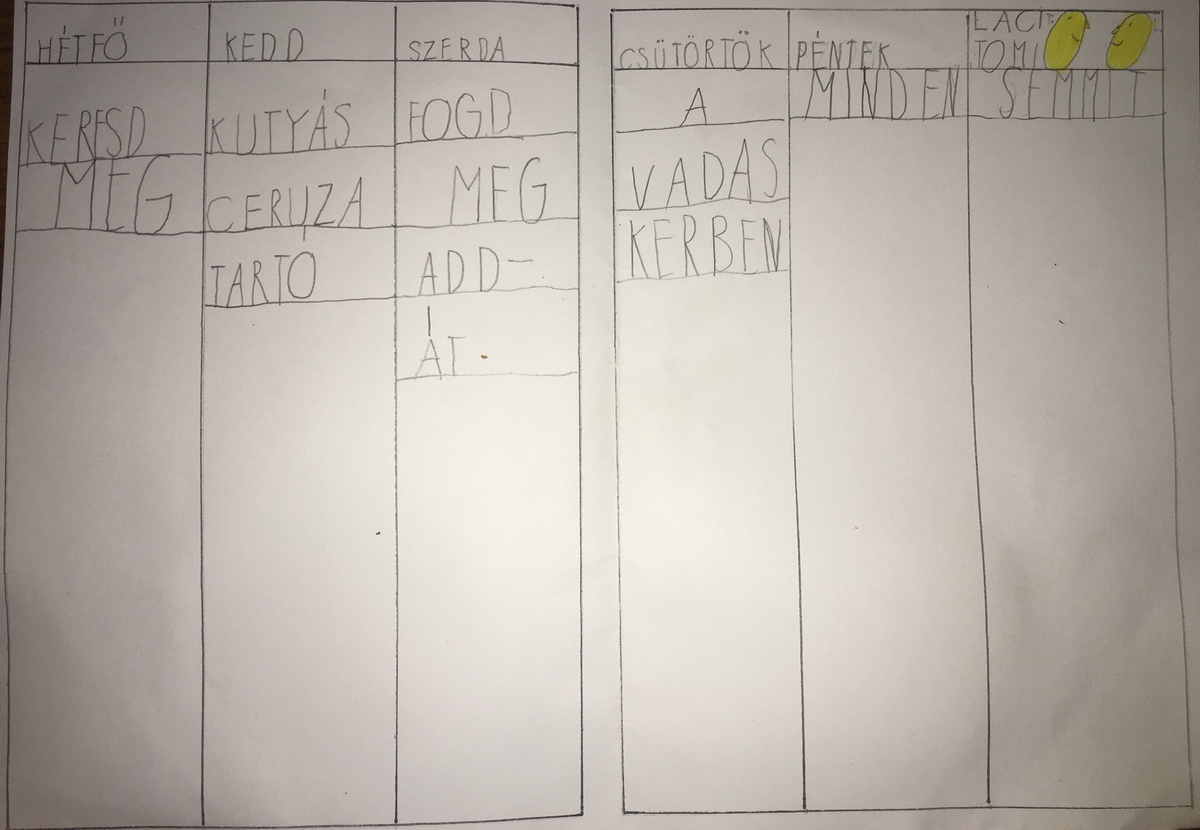 HÉTFŐ
KERESD
MEG
KEDD
KUTYÁS
CERUZA
TARTÓ
SZERDA
FOGD
MEG
ADD-
ÁT.
CSÜTÖRTÖK
A
VADAS
KERBEN
PÉNTEK
MINDEN
LACI
TOMI
SEMMIT